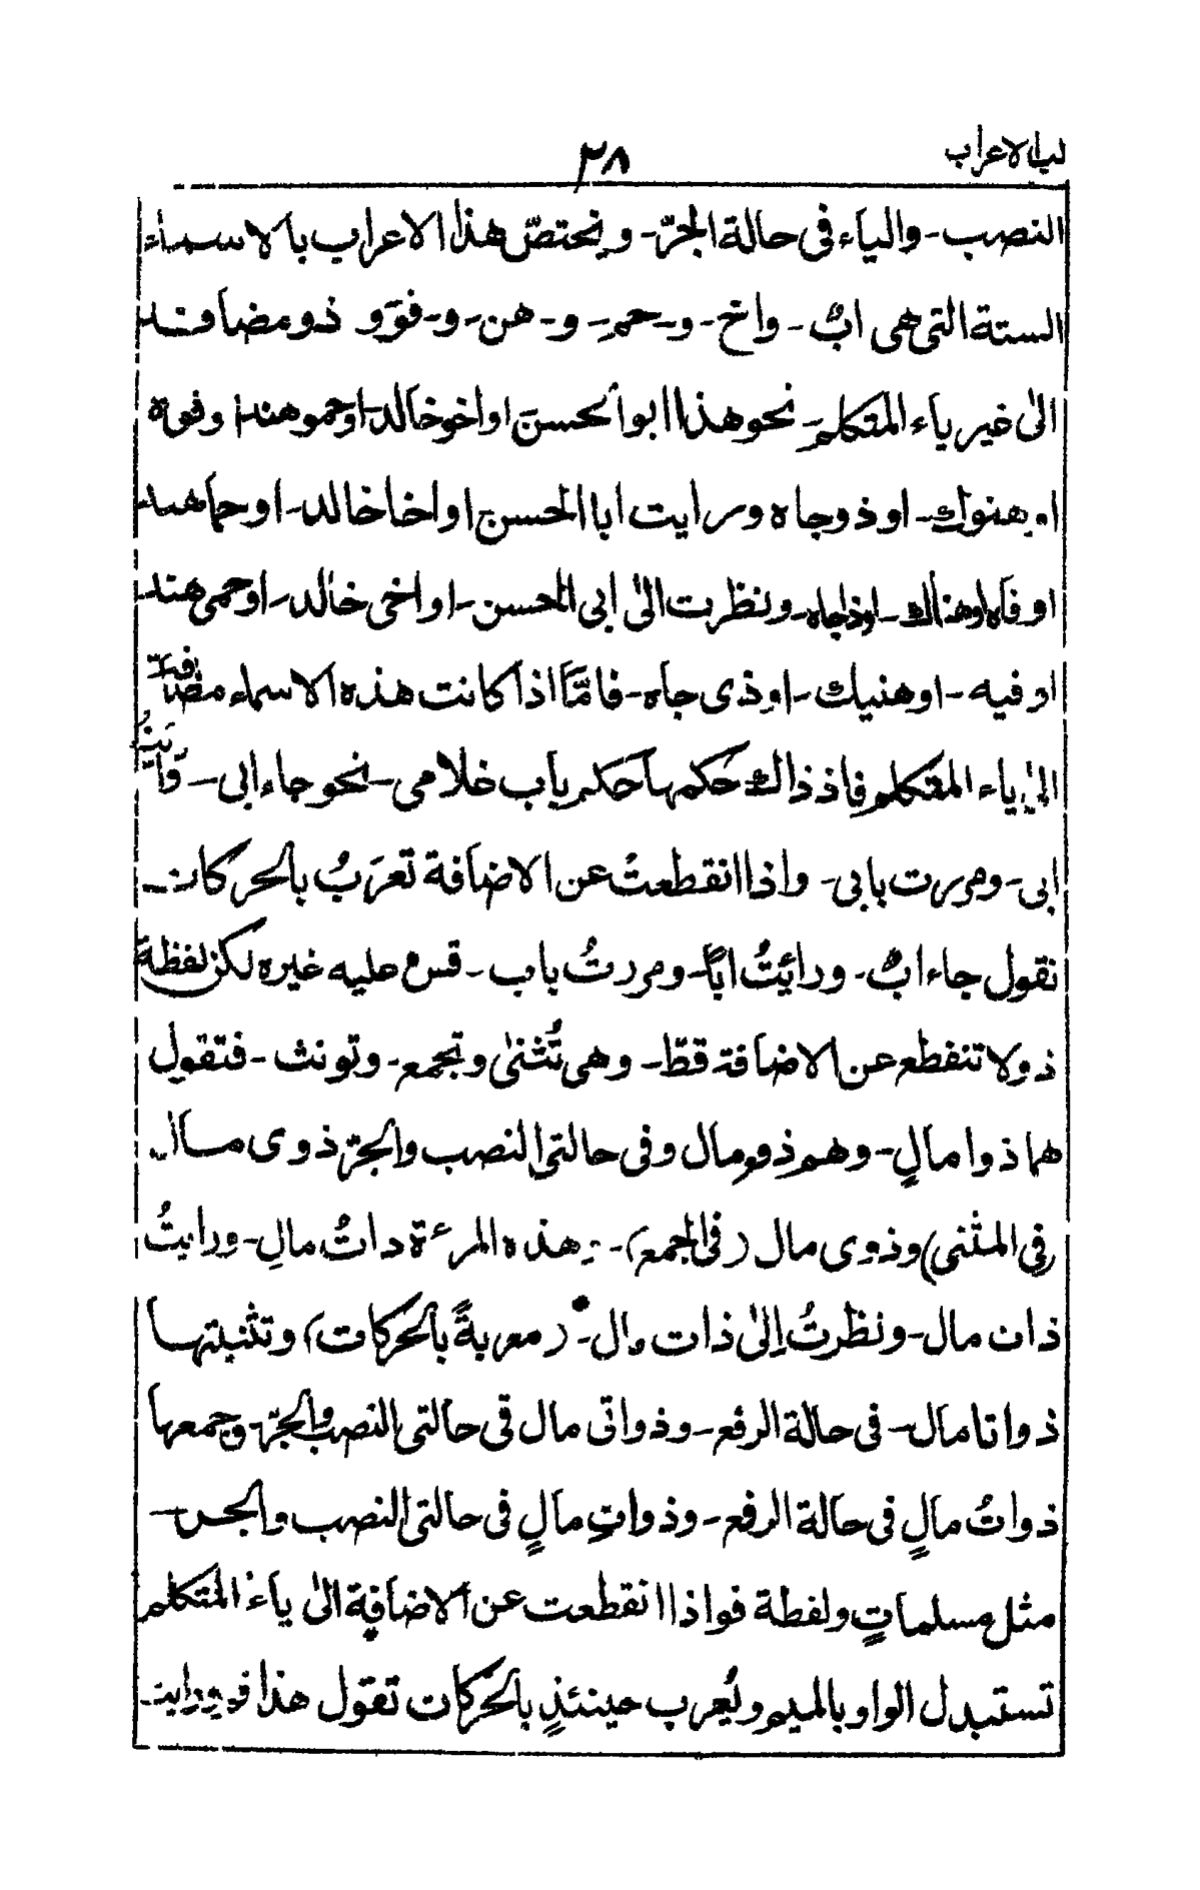 لباب الاعراب
٢٨
النصب - والياء فى حالة الجرّ - ويختصّ هذا الاعراب بالاسماء
الستة التى هى ابٌ - واخ - و- حمـ - و- هن - و- فوَ و ذو مضافة
الىٰ غير ياء المتكلمـ نحو هذا ابوالحسن او اخو خالد او حمو هند او فوه
او هنوك - او ذوجاه ورايت اباالحسن او اخا خالد - او حما هند
او فاه او هناك - او ذا جاه - ونظرت الىٰ ابى الحسن - او اخى خالد - او حمى هند
او فيه - او هنيك - او ذى جاه - فامَّا اذا كانت هذه الاسماء مضافةً
الىٰ ياء المتكلم فاذ ذاك حكمها حكم باب غلامى - نحو جاء ابى - ورايتُ
ابى - ومررت بابى - واذا انقطعتُ عن الاضافة تعرَبُ بالحركات -
نقول جاء ابٌ - ورائيتُ اباً - ومررتُ باب - قس عليه غيره لكن لفظة
ذو لا تنفطع عن الاضافة قطّ - وهى تُثنىٰ وتجمع - وتونث - فتقول
هما ذوا مالٍ - وهم ذوو مال وفى حالتى النصب والجرّ ذوى مال
(فى المثنى) وذوى مال (فى الجمع) - وهذه المرءة داتُ مالِ - ورايتُ
ذات مال - ونظرتُ اِلىٰ ذات مال - (معربةً بالحركات) وتثنيتها
ذواتا مال - فى حالة الرفع - وذواتى مال فى حالتى النصب والجرّ - وجمعها
ذواتُ مالٍ فى حالة الرفع - وذواتِ مالٍ فى حالتى النصب والجر -
مثل مسلماتٍ ولفظة فو اذا انقطعت عن الاضافة الىٰ ياء المتكلم
تستبدل الواو بالميم ويُعرب حينئذٍ بالحركات تقول هذا فم ورايت